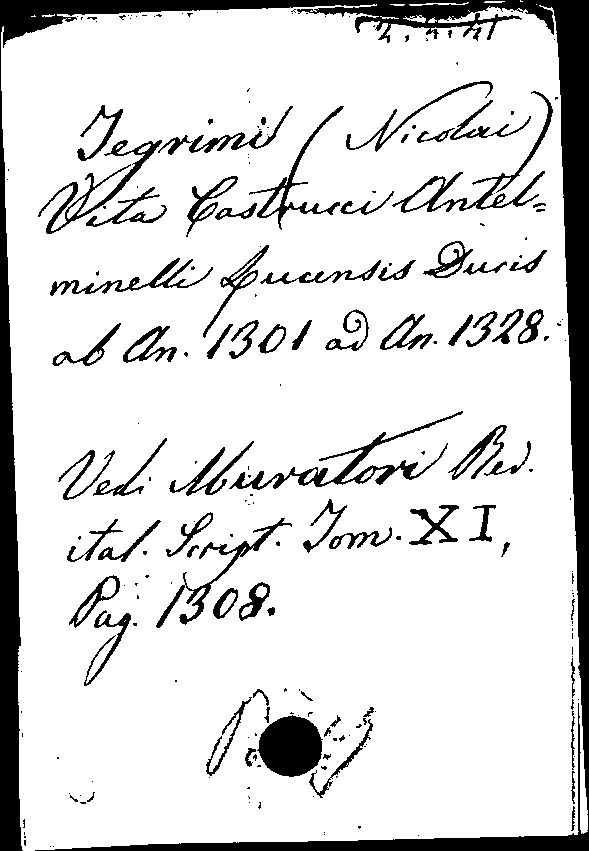 2.4.41
Tegrimi (Nicolai)
Vita Castrucci Antel=
minelli Lucensis Ducis
ab An. 1301 ad An. 1328.
Vedi Muratori Rer.
ital. Script. Tom. XI,
Pag. 1308.